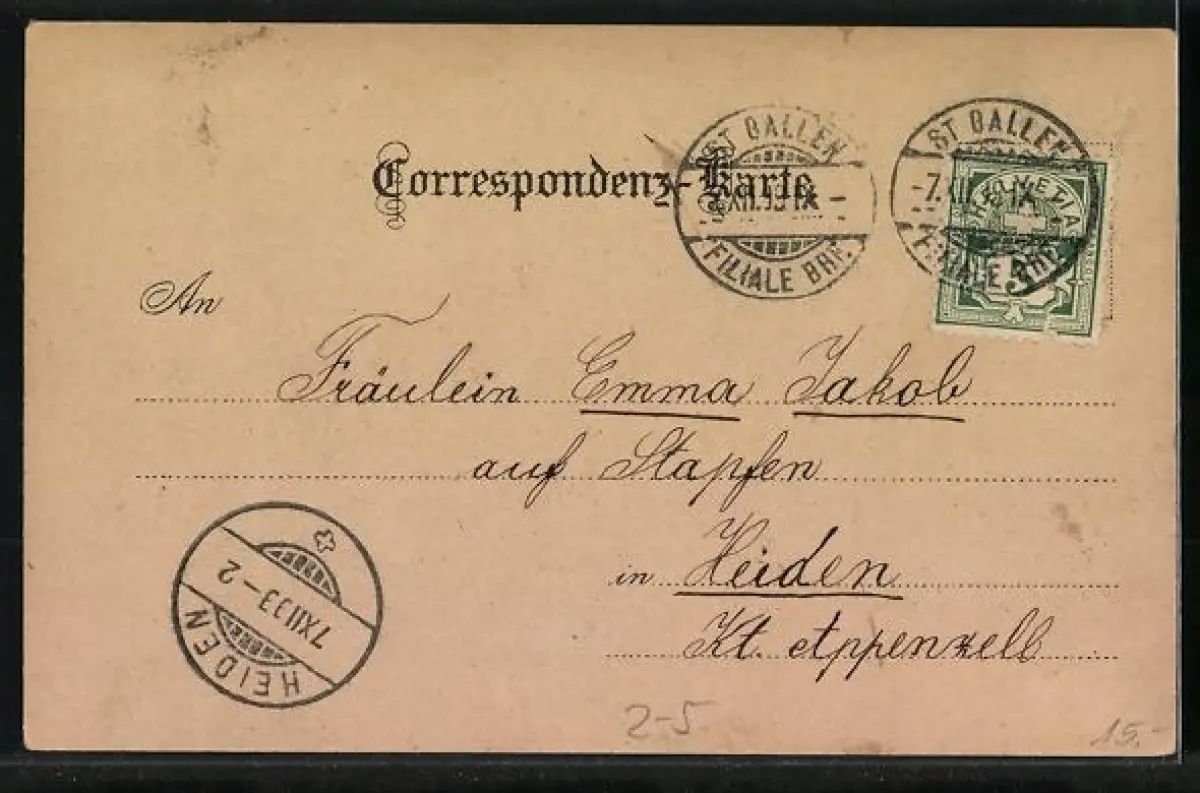 Correspondenz-Karte
ST GALLEN
XII.93 IX
FILIALE BHF.
ST GALLEN
-7.XII. IX
FILIALE BHF.
HELVETIA
5
An
Fräulein Emma Jakob
auf Stapfen
in Heiden
Kt. Appenzell
HEIDEN
7.XII.93-2
2-5
15.-